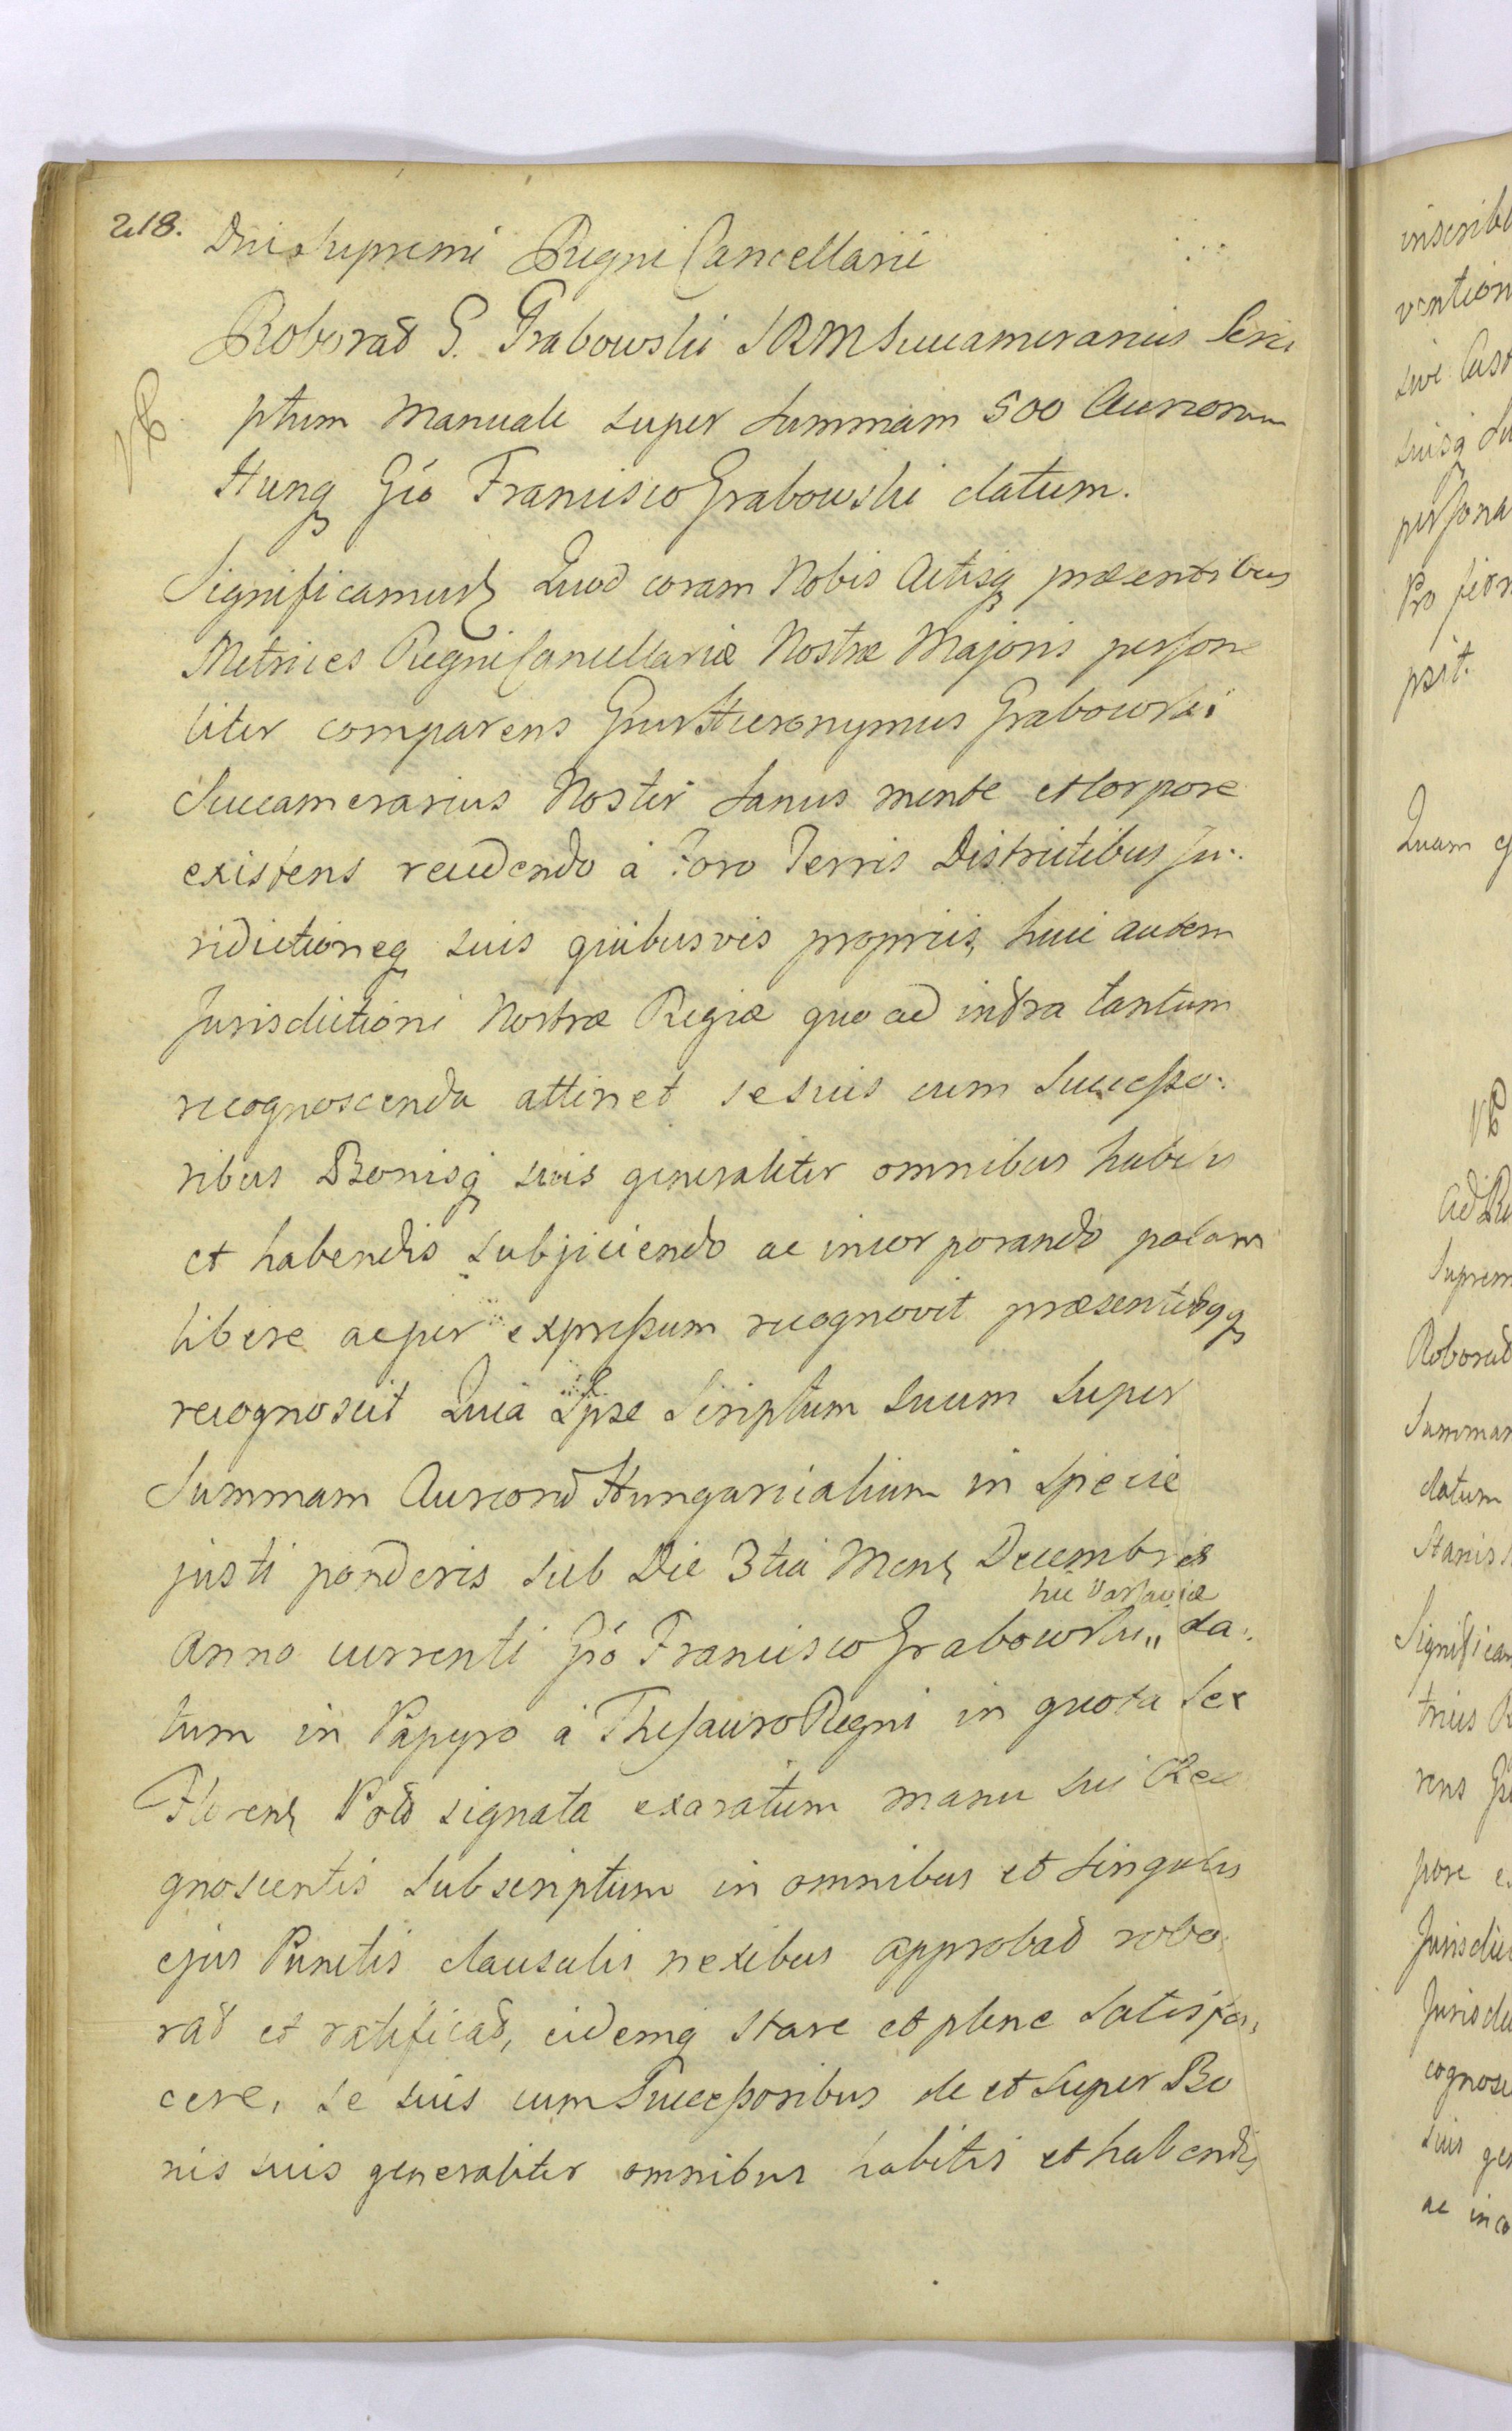 218.
Dni Supremi Regni Cancellarii
Roborat G. Grabowski SRM Succamerarius Scri
ptum Manuale super Summam 500 Aureorum
NB
Hungq Gso Francisco Grabowski datum.
Significamus Quod coram Nobis Actisq præsentibus
Metrices Regni Cancellariæ Nostræ Majoris persona
liter comparens Gnus Hieronymus Grabowski
Succamerarius Noster Sanus mente et Corpore
existens recedendo à Foro Terris Districtibus Ju:
ridictioneq suis quibusvis propriis, huic autem
Jurisdictioni Nostræ Regiæ quo ad infra tantum
recognoscenda attinet se suis cum Successo:
ribus Bonisq suis generaliter omnibus habitis
et habendis subjiciendo ac incorporando palam
libere ac per expressum recognovit præsentibqq
recognoscit Quia Ipse Scriptum Suum super
Summam Aureorũ Hungaricalium in Specie
justi ponderis sub Die 3tia Mens Decembris
hic Varsaviæ
Anno currenti Gso Francisco Grabowski „ da:
tum in Papyro à Thesauro Regni in quota Sex
Florens Pold signata exaratum manu sui Reco
gnoscentis subscriptum in omnibus et singulis
ejus Punctis clausulis nexibus approbat robo:
rat et ratificat, eidemq stare et plene satisfa:
cere, se suis cum Successoribus de et super Bo
nis suis generaliter omnibus habitis et habendis
inscribe
vention
sive Cas
suisq Su
persona
Pro fir
psit.
Quam
NB
Ad R
Suprem
Roborat
Summam
datum
Stanis
Significam
trices R
rens G
pore e
Jurisdic
Jurisdic
cognosc
suis gen
ac inco